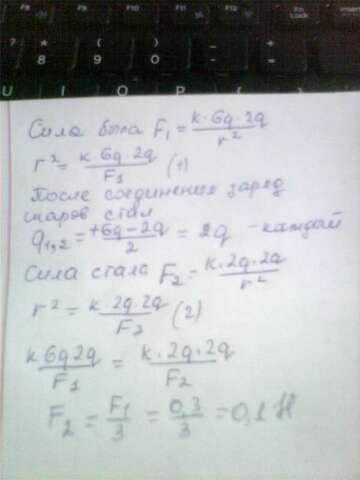 F8 F9 F10 F11 F12 PrtSc Fn Lock Insert
* ( ) _ +
8 9 0 - =
U I O P { }
Сила была F₁ = k·6q·2q / r²
r² = k·6q·2q / F₁ (1)
После соединения заряд
шаров стал
q₁,₂ = +6q-2q / 2 = 2q - каждый
Сила стала F₂ = k·2q·2q / r²
r² = k·2q·2q / F₂ (2)
k6q2q / F₁ = k·2q·2q / F₂
F₂ = F₁ / 3 = 0,3 / 3 = 0,1 Н